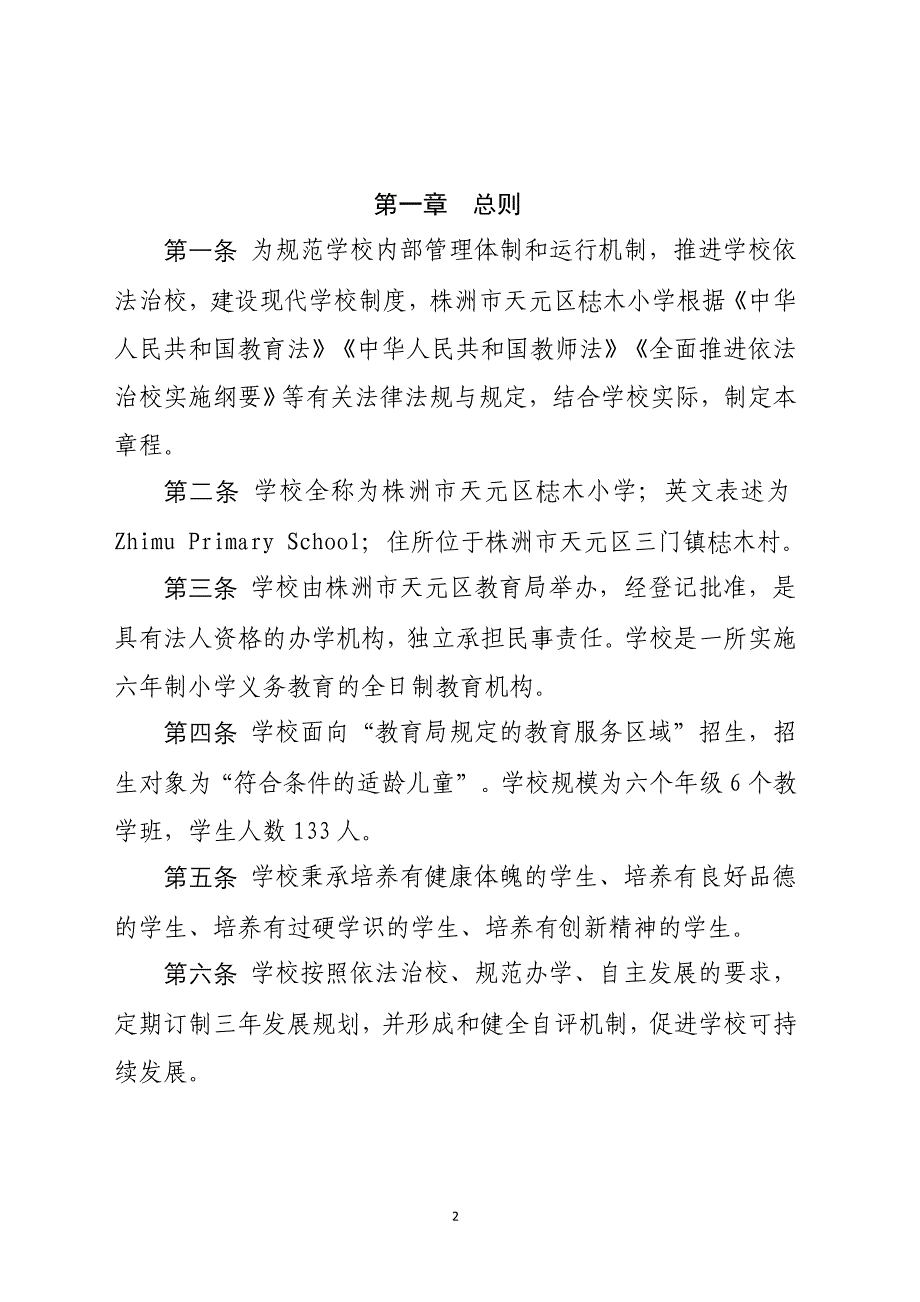 第一章　总则
第一条 为规范学校内部管理体制和运行机制，推进学校依
法治校，建设现代学校制度，株洲市天元区梽木小学根据《中华
人民共和国教育法》《中华人民共和国教师法》《全面推进依法
治校实施纲要》等有关法律法规与规定，结合学校实际，制定本
章程。
第二条 学校全称为株洲市天元区梽木小学；英文表述为
Zhimu Primary School；住所位于株洲市天元区三门镇梽木村。
第三条 学校由株洲市天元区教育局举办，经登记批准，是
具有法人资格的办学机构，独立承担民事责任。学校是一所实施
六年制小学义务教育的全日制教育机构。
第四条 学校面向“教育局规定的教育服务区域”招生，招
生对象为“符合条件的适龄儿童”。学校规模为六个年级 6 个教
学班，学生人数 133 人。
第五条 学校秉承培养有健康体魄的学生、培养有良好品德
的学生、培养有过硬学识的学生、培养有创新精神的学生。
第六条 学校按照依法治校、规范办学、自主发展的要求，
定期订制三年发展规划，并形成和健全自评机制，促进学校可持
续发展。
2